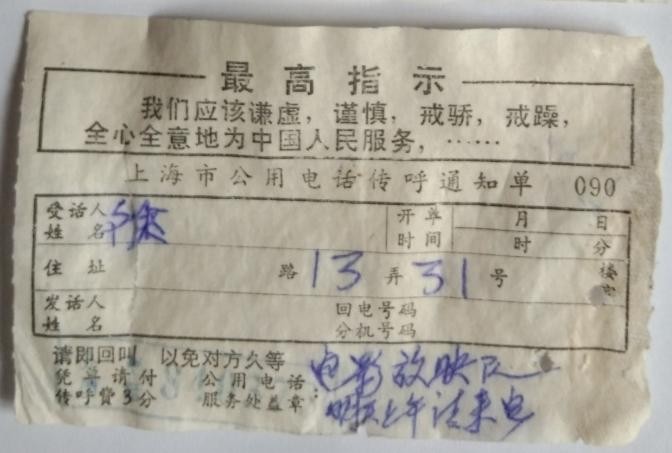 最高指示
我们应该谦虚，谨慎，戒骄，戒躁，
全心全意地为中国人民服务，……
上海市公用电话传呼通知单 090
受话人 姓名 开单时间 月 日 时 分
住址 路 13 弄 31 号 楼
发话人 姓名 回电号码 分机号码
请即回叫 以免对方久等
凭单请付 公用电话 电影放映队
传呼费3分 服务处盖章： 明天上午请来电